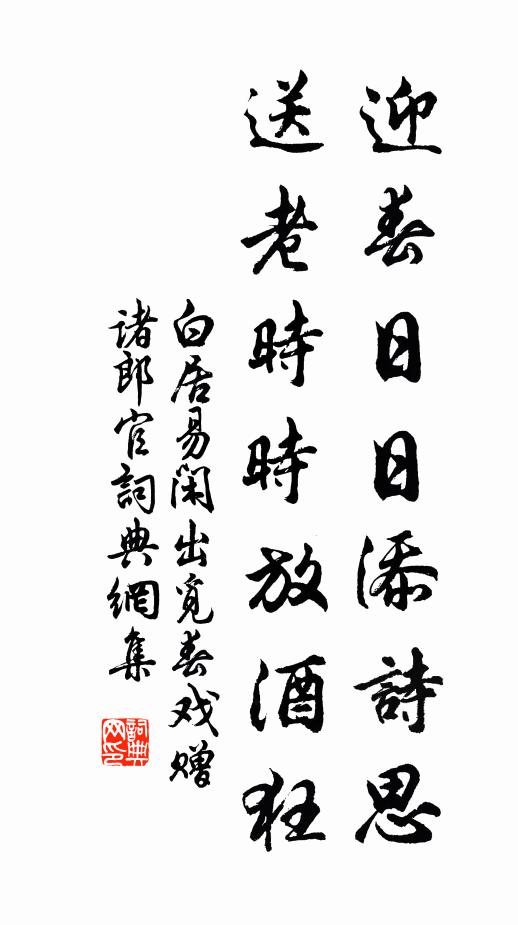 迎春日日添詩思
送老時時放酒狂
白居易閑出覓春戏赠
诸郎官詞典網集
詞典网印